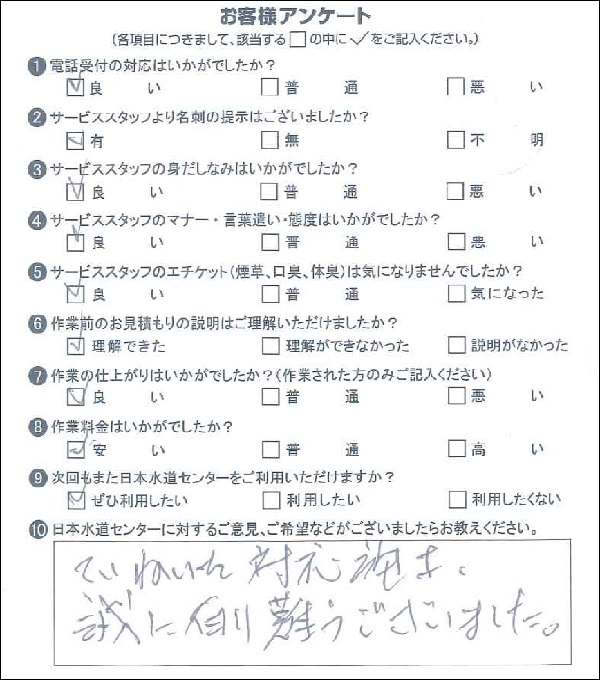 お客様アンケート
(各項目につきまして、該当する□の中に✓をご記入ください。)
❶電話受付の対応はいかがでしたか?
☑良い □普通 □悪い
❷サービススタッフより名刺の提示はございましたか?
☑有 □無 □不明
❸サービススタッフの身だしなみはいかがでしたか?
☑良い □普通 □悪い
❹サービススタッフのマナー・言葉遣い・態度はいかがでしたか?
☑良い □普通 □悪い
❺サービススタッフのエチケット(煙草、口臭、体臭)は気になりませんでしたか?
☑良い □普通 □気になった
❻作業前のお見積もりの説明はご理解いただけましたか?
☑理解できた □理解ができなかった □説明がなかった
❼作業の仕上がりはいかがでしたか?(作業された方のみご記入ください)
☑良い □普通 □悪い
❽作業料金はいかがでしたか?
☑安い □普通 □高い
❾次回もまた日本水道センターをご利用いただけますか?
☑ぜひ利用したい □利用したい □利用したくない
❿日本水道センターに対するご意見、ご希望などがございましたらお教えください。
ていねいな対応
誠に有り難うございました。